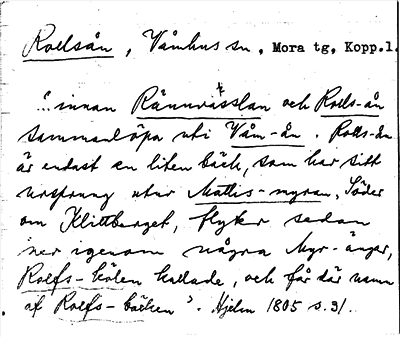 Roelsån, Våmhus sn, Mora tg, Kopp.l.
"innan Rännvässlan och Roels-ån
sammanlöpa uti Våm-ån. Roels-ån
är endast en liten bäck, som har sitt
ursprung utur Mattis-myran, Söder
om Klittberget, flyter sedan
ner igenom några Myr-ängar,
Rolfs-kölen kallade, och får där namn
af Rolfs-bäcken". Hjelm 1805 s. 31.